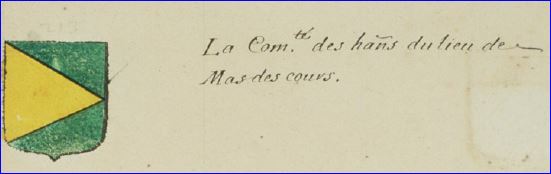 La Com.té des hãns du lieu de
Mas des cours.